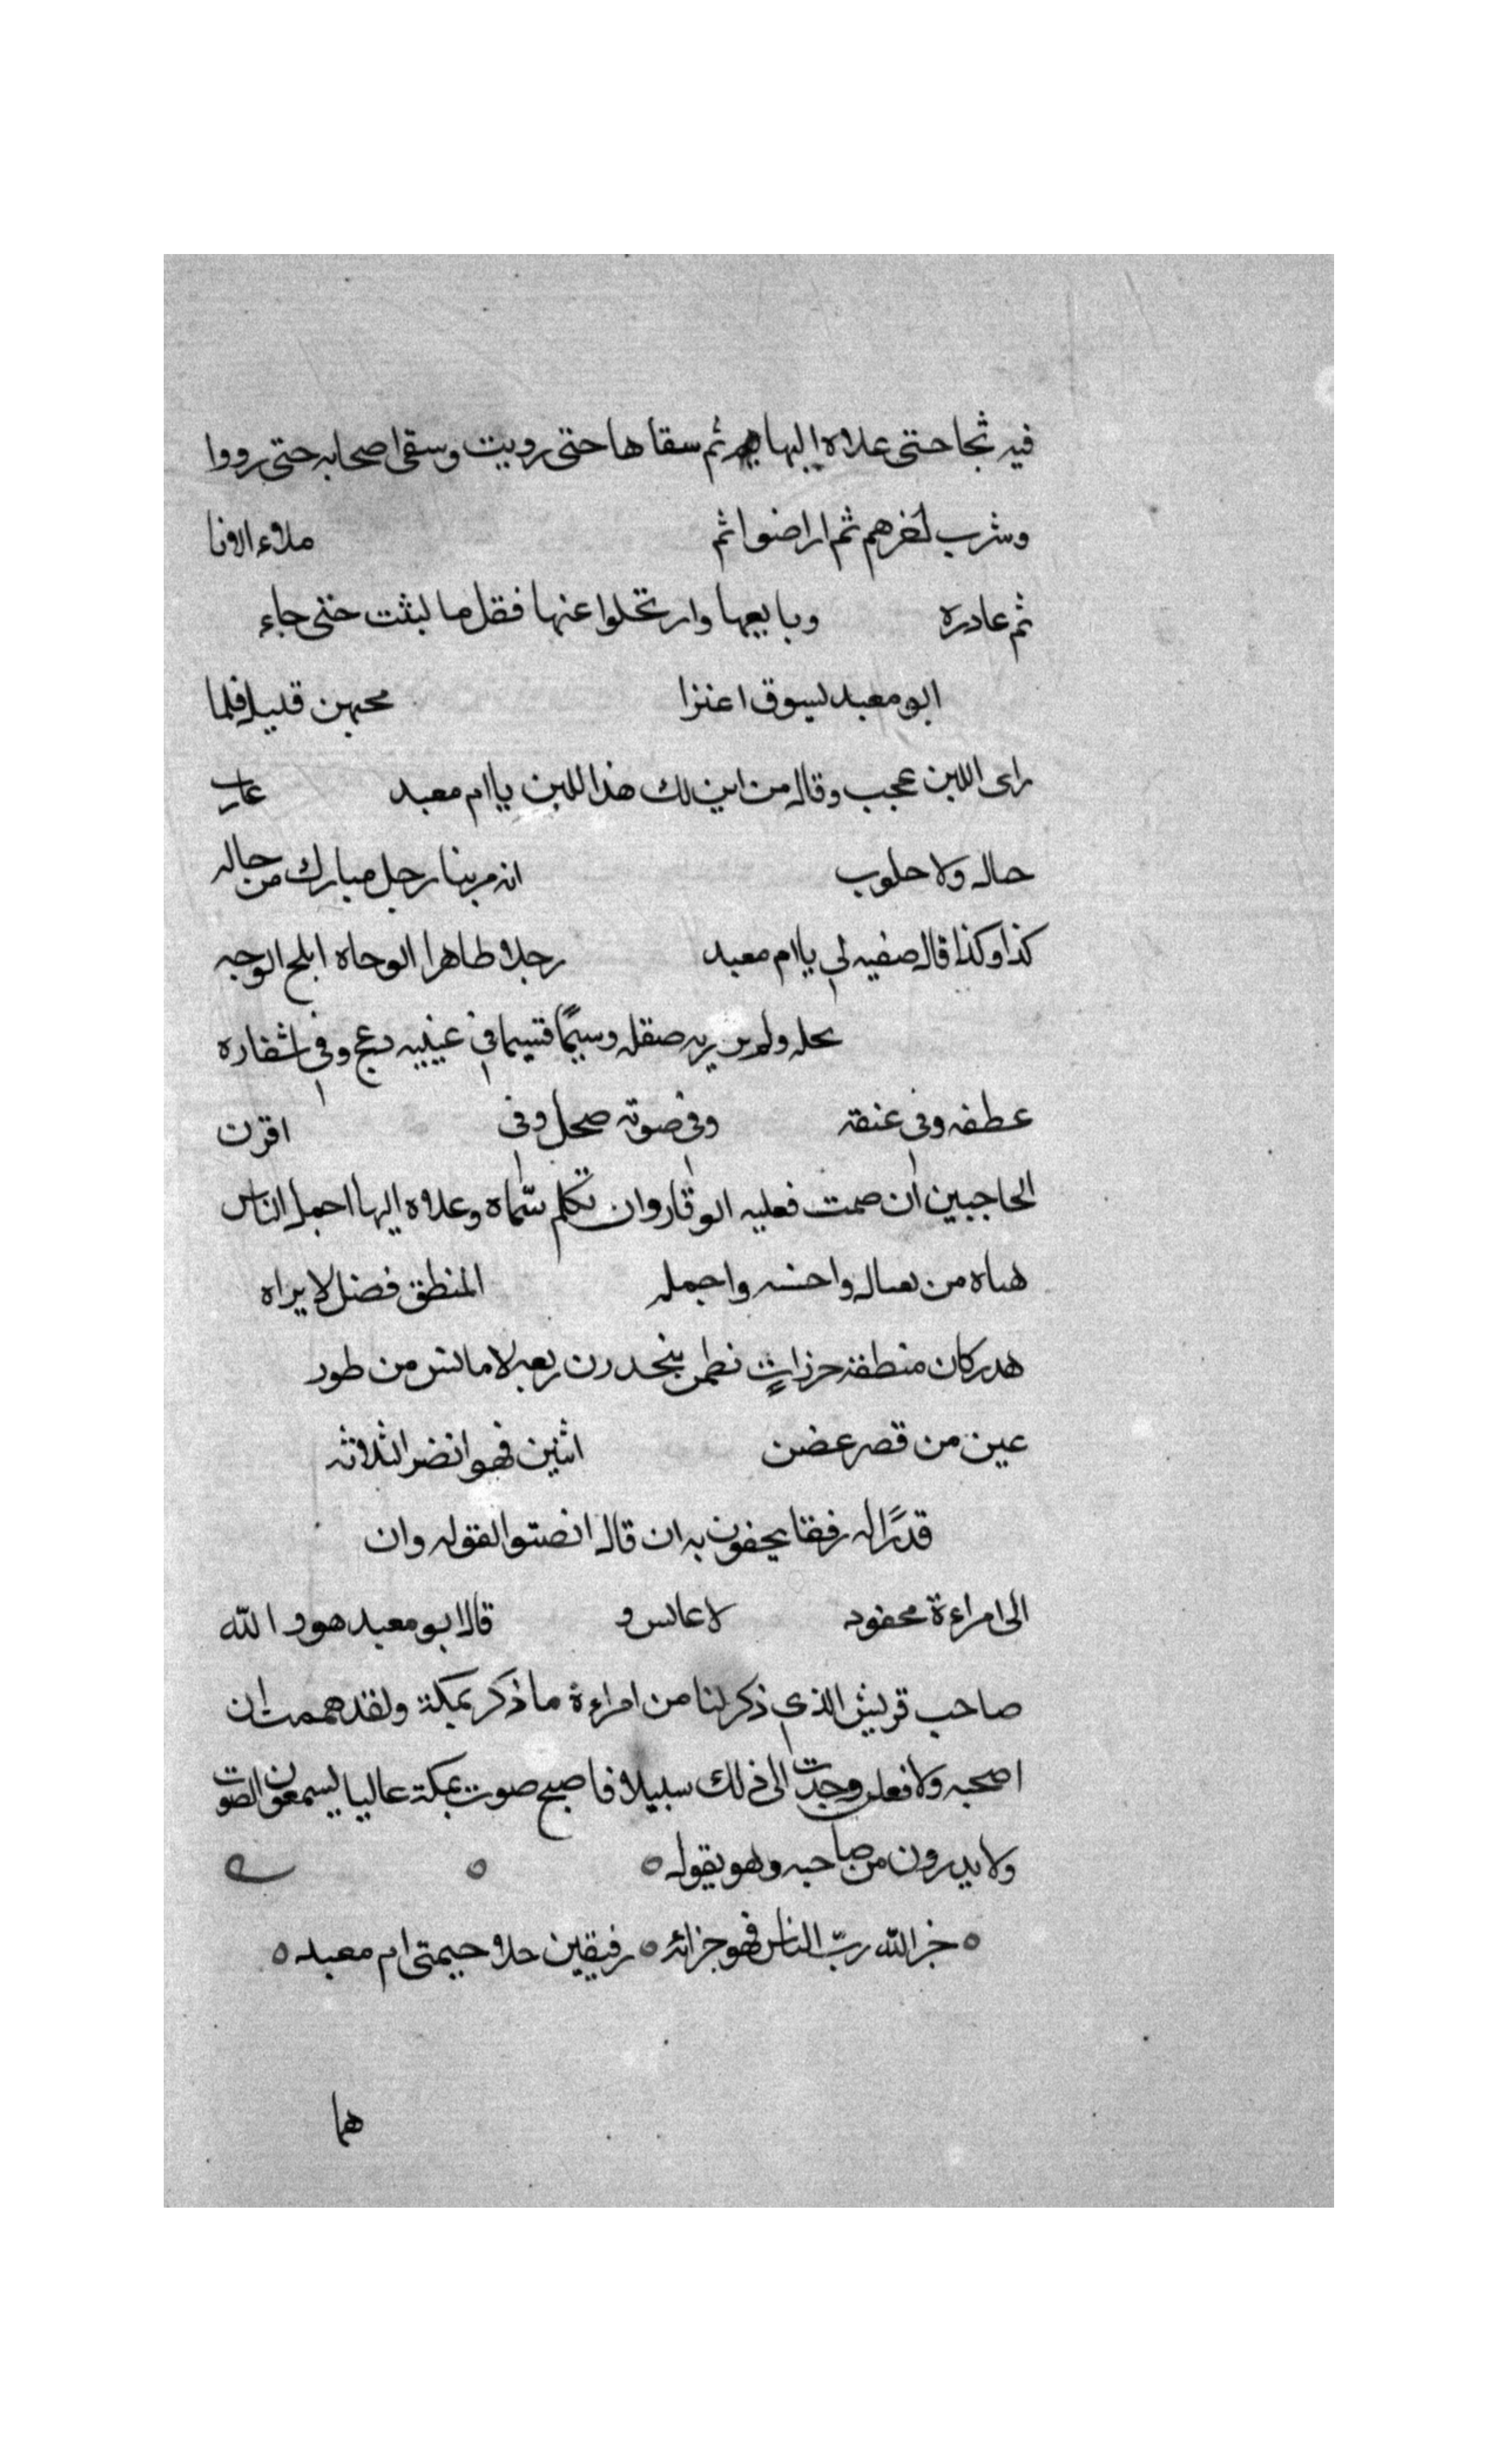 فيه ثجا حتى علاه البها ثم سقاها حتى رويت وسقى اصحابه حتى رووا
وشرب اخرهم ثم اراضوا ثم ملاء الانا
ثم عادره وبايعها وارتحلوا عنها فقل ما لبثت حتى جاء
ابو معبد ليسوق اعنزا محهن قليل فلما
راى اللبن عجب وقال من اين لك هذا اللبن يا ام معبد عارب
حال ولا حلوب انه مر بنا رجل مبارك من حاله
كذا وكذا قال صفيه لي يا ام معبد رجلا طاهرا الوحاه ابلج الوجه
نحله ولم يزريه صقله وسيمًا قسيما في عينيه دعج وفي اشفاره
عطفه وفي عنقه وفي صوته صحل وفي اقرن
الحاجبين ان صمت فعليه الوقار وان تكلم سماه وعلاه البها اجمل الناس
هباه من بعيد واحسنه واجمله المنطق فضل لا يراه
هدر كان منطقه خرزاتٍ نظمن ينحدرن ربعه لا ماس من طور
عين من قصر غضن اثنين فهو انضر الثلاثه
قدرًا له رفقا يحفون به ان قال انصتوا لقوله وان
الى امراءة محفود لا عابس و قال ابو معبد هو والله
صاحب قريش الذي ذكر لنا من امراءة ما ذكر بمكة ولقد هممت ان
اصحبه ولا فعلن وجدت الى ذلك سبيلا فاصبح صوت بمكة عاليا يسمعون الصوت
ولا يدرون من صاحبه وهو يقول
جزا الله رب الناس فهو جزائه رفيقين حلا خيمتى ام معبد
هما